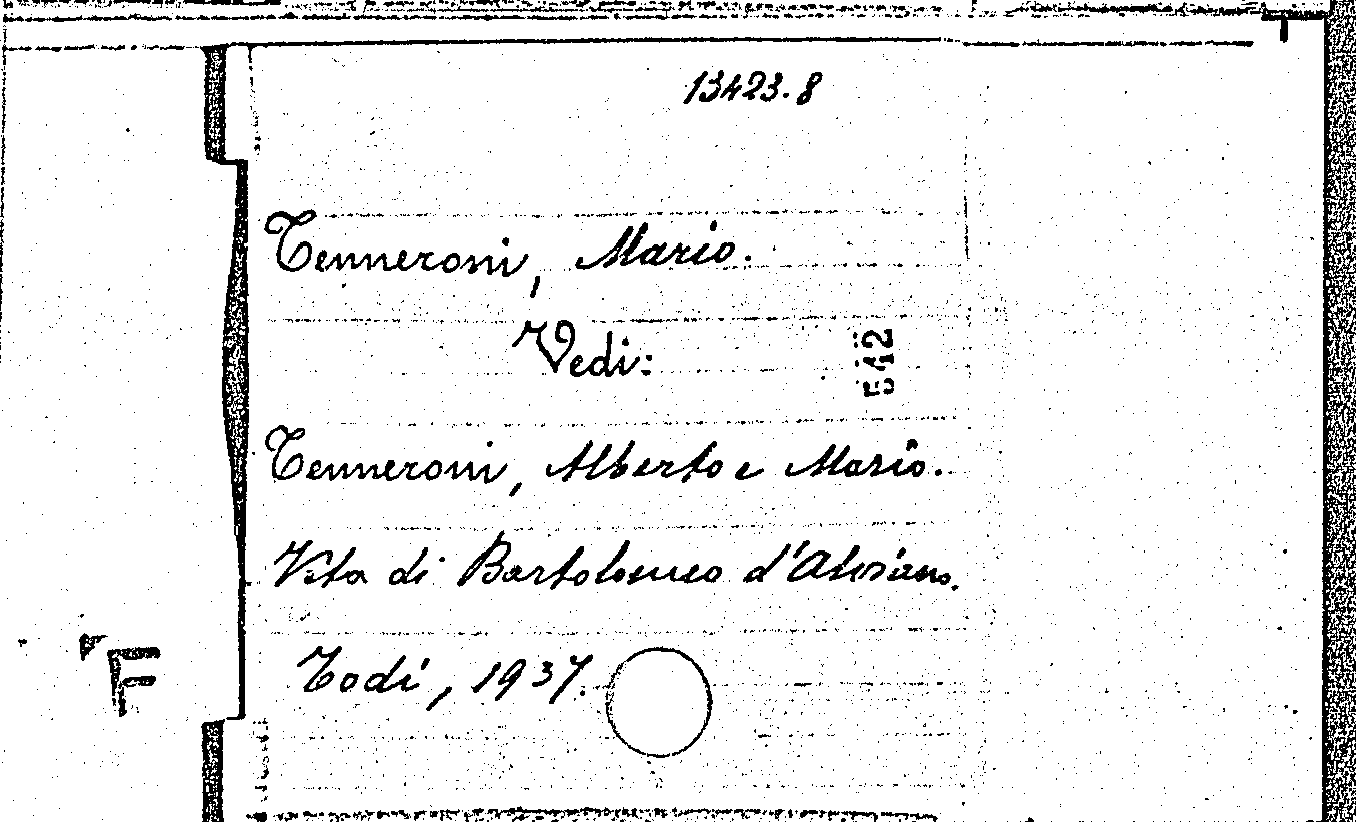 13423.8
Tenneroni, Mario.
Vedi:
542
Tenneroni, Alberto e Mario.
Vita di Bartolomeo d'Alviano.
Todi, 1937.
F